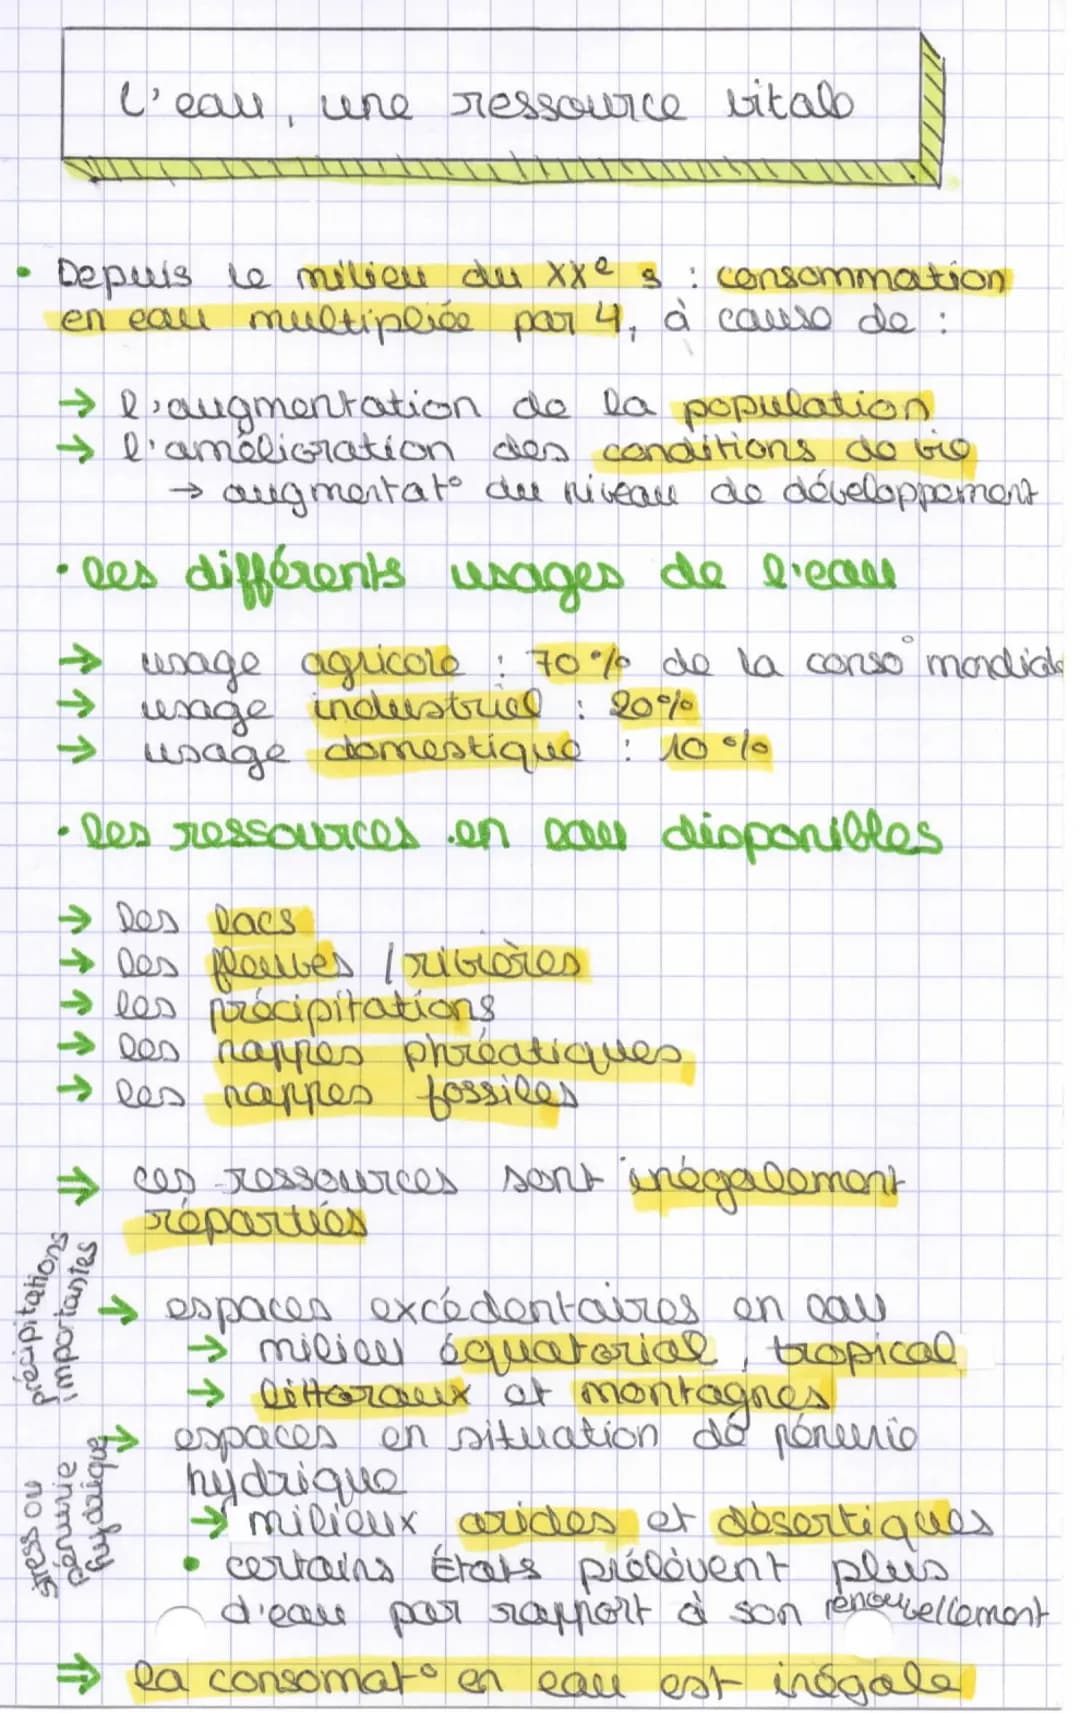 L'eau, une ressource vitale
• Depuis le milieu du XXe s : consommation
en eau multipliée par 4, à cause de :
→ l'augmentation de la population
→ l'amélioration des conditions de vie
→ augmentat° du niveau de développement
• les différents usages de l'eau
→ usage agricole : 70% de la conso° mondiale
→ usage industriel : 20%
→ usage domestique : 10%
• les ressources en eau disponibles
→ les lacs
→ les fleuves / rivières
→ les précipitations
→ les nappes phréatiques
→ les nappes fossiles
⇒ ces ressources sont inégalement
réparties
précipitations
importantes
→ espaces excédentaires en eau
→ milieu équatorial, tropical
→ littoraux et montagnes
stress ou
pénurie
hydrique
→ espaces en situation de pénurie
hydrique
→ milieux arides et désertiques
• certains États prélèvent plus
d'eau par rapport à son renouvellement
⇒ la consomat° en eau est inégale